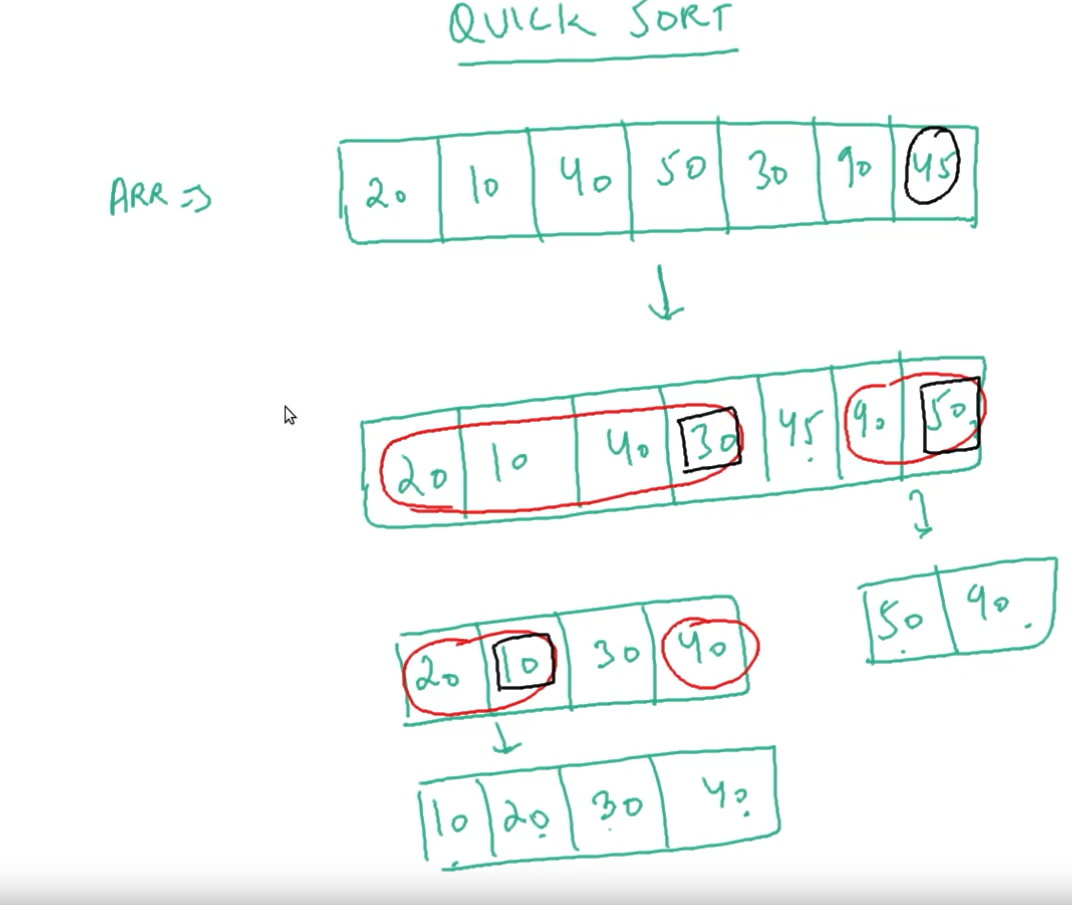 QUICK SORT
ARR => 20 10 40 50 30 90 45
20 10 40 30 45 90 50
50 90
20 10 30 40
10 20 30 40